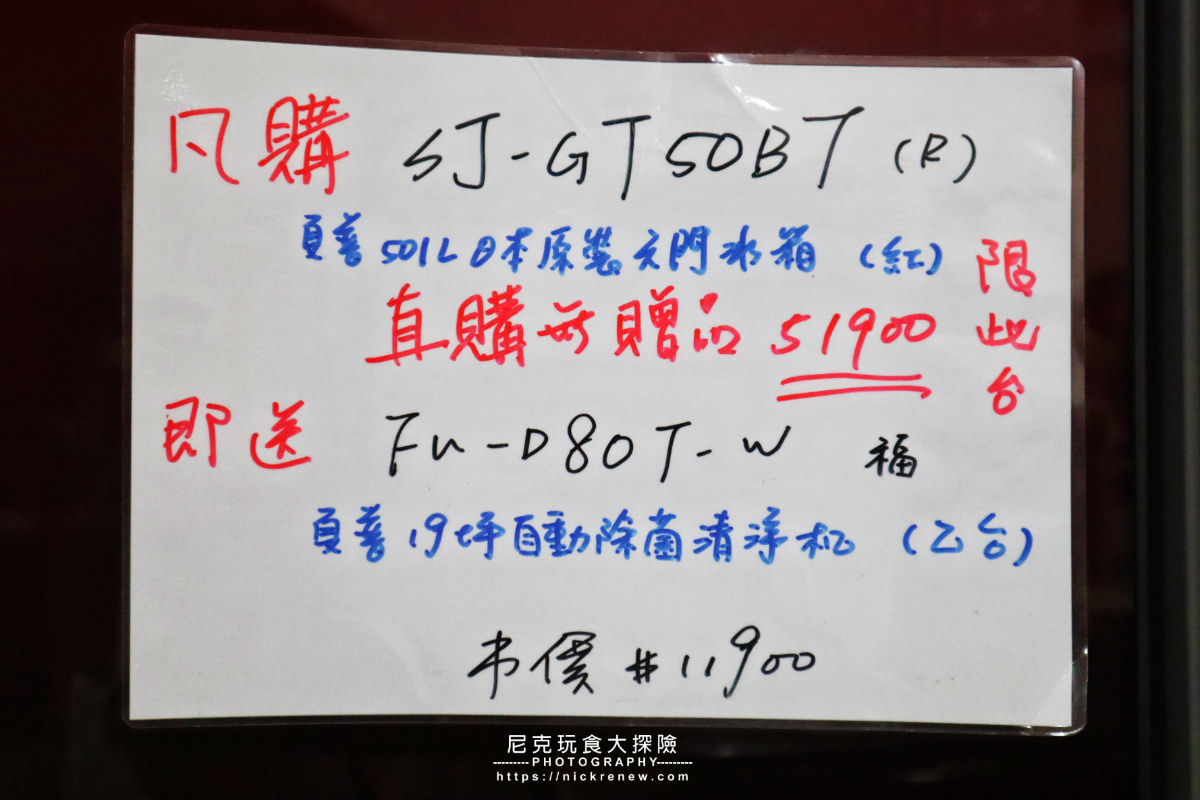 凡購 SJ-GT50BT (R)
夏普 501L 日本原裝六門冰箱 (紅)
直購無贈品 51900
限此台
即送 FU-D80T-W 福
夏普 19坪自動除菌清淨机 (乙台)
市價 #11900
尼克玩食大探險
PHOTOGRAPHY
https://nickrenew.com